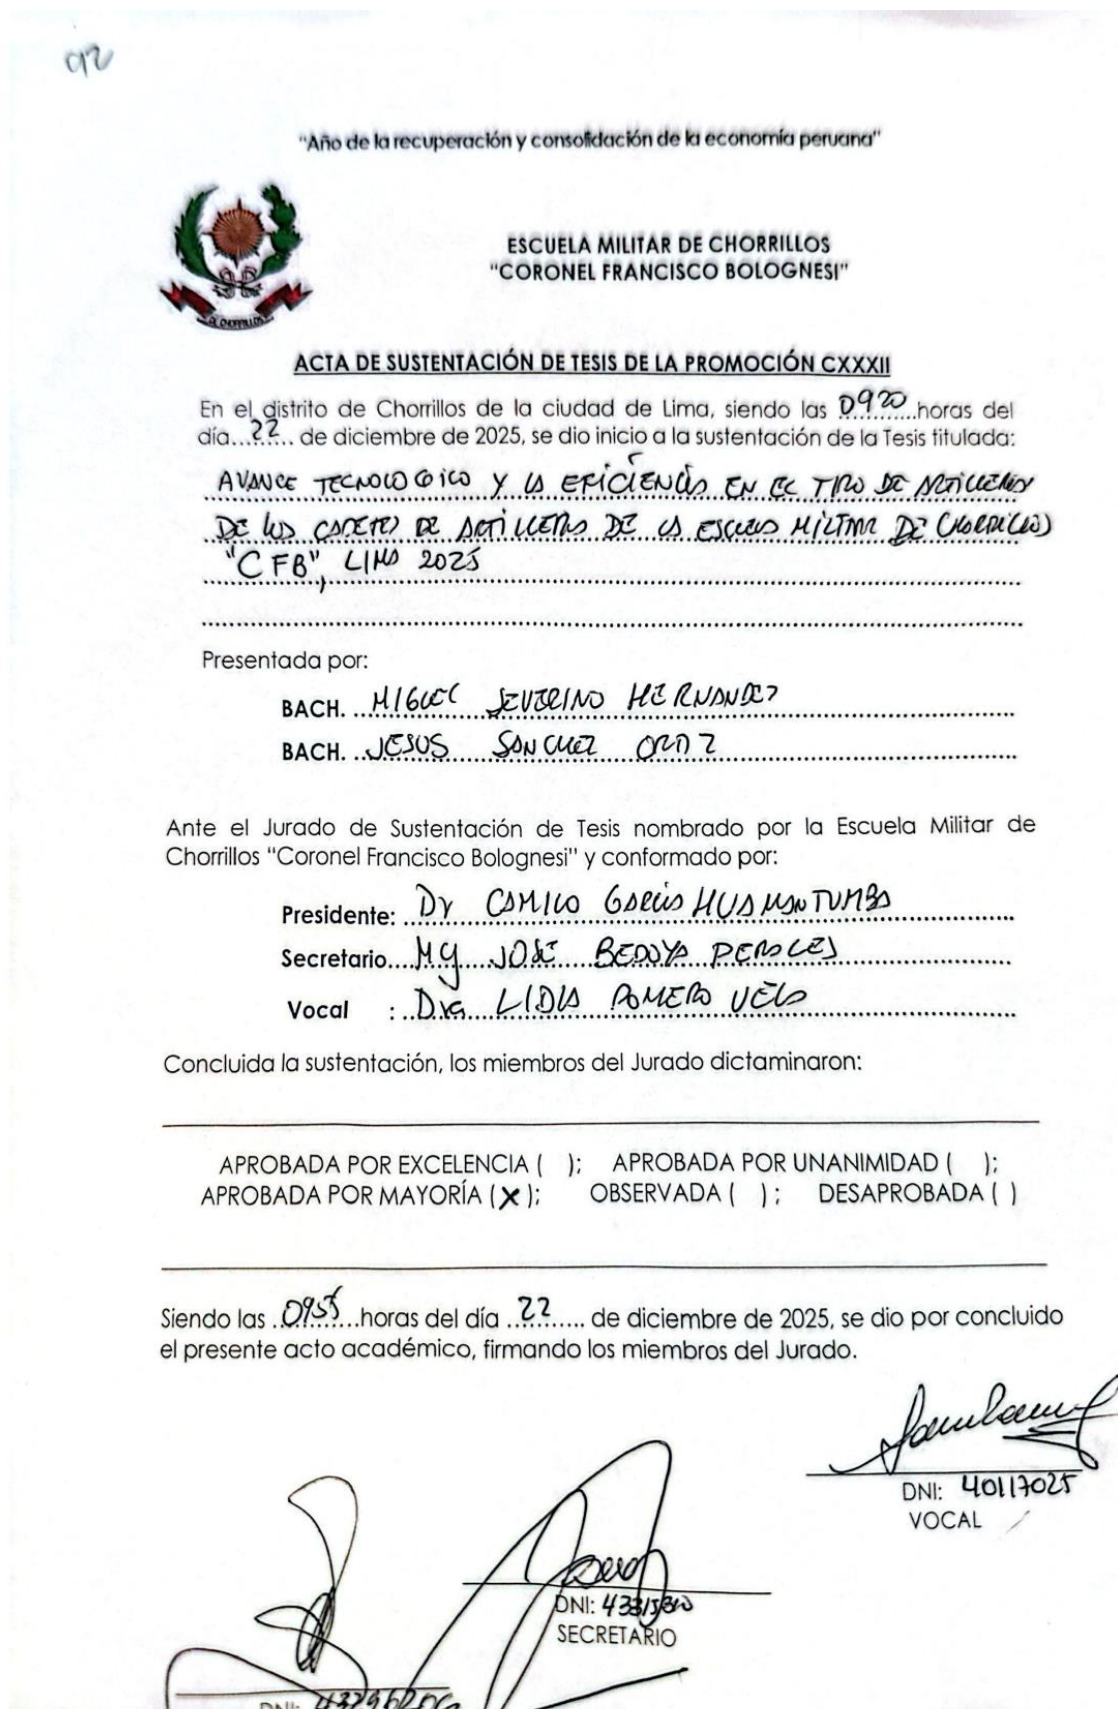 92
"Año de la recuperación y consolidación de la economía peruana"
ESCUELA MILITAR DE CHORRILLOS
"CORONEL FRANCISCO BOLOGNESI"
DE CHORRILLOS
ACTA DE SUSTENTACIÓN DE TESIS DE LA PROMOCIÓN CXXXII
En el distrito de Chorrillos de la ciudad de Lima, siendo las 0920 horas del
día...22... de diciembre de 2025, se dio inicio a la sustentación de la Tesis titulada:
AVANCE TECNOLOGICO Y LA EFICIENCIA EN EL TIRO DE ARTILLERIA
DE LOS CADETES DE ARTILLERIA DE LA ESCUELA MILITAR DE CHORRILLOS
"CFB", LIMA 2025
Presentada por:
BACH. MIGUEL SEVERINO HERNANDEZ
BACH. JESUS SANCHEZ ORTIZ
Ante el Jurado de Sustentación de Tesis nombrado por la Escuela Militar de
Chorrillos "Coronel Francisco Bolognesi" y conformado por:
Presidente: Dr CAMILO GARCIA HUAMANTUMBA
Secretario Mg JOSÉ BEDOYA PERALES
Vocal : Dra LIDIA ROMERO VELA
Concluida la sustentación, los miembros del Jurado dictaminaron:
APROBADA POR EXCELENCIA ( ); APROBADA POR UNANIMIDAD ( );
APROBADA POR MAYORÍA (X); OBSERVADA ( ); DESAPROBADA ( )
Siendo las 0955 horas del día 22 de diciembre de 2025, se dio por concluido
el presente acto académico, firmando los miembros del Jurado.
DNI: 40117025
VOCAL
DNI:
SECRETARIO
DNI: